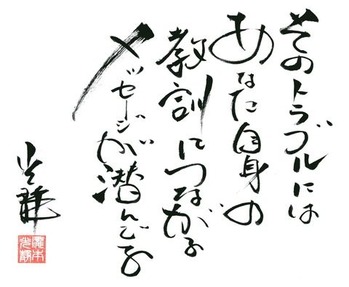 そのトラブルには
あなた自身の
教訓につながる
メッセージが潜んでる